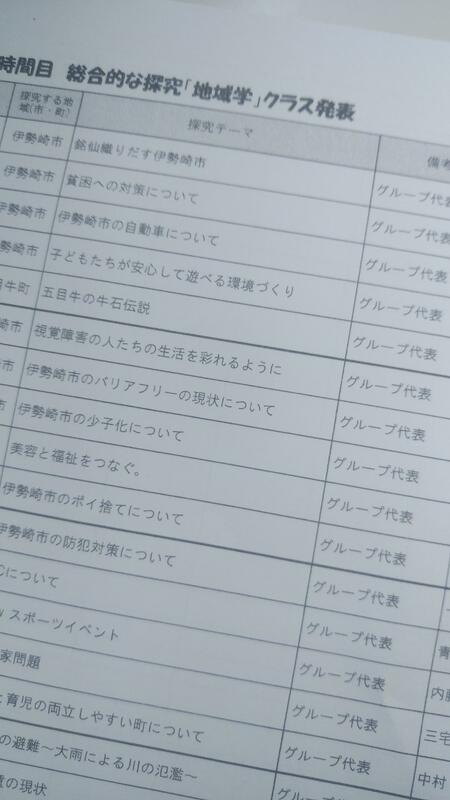 時間目 総合的な探究「地域学」クラス発表
探究する地域(市・町) 探究テーマ 備考
伊勢崎市 銘仙織りだす伊勢崎市 グループ代表
伊勢崎市 貧困への対策について グループ代表
伊勢崎市 伊勢崎市の自動車について グループ代表
勢崎市 子どもたちが安心して遊べる環境づくり グループ代表
牛町 五目牛の牛石伝説 グループ代表
崎市 視覚障害の人たちの生活を彩れるように グループ代表
市 伊勢崎市のバリアフリーの現状について グループ代表
市 伊勢崎市の少子化について グループ代表
美容と福祉をつなぐ。 グループ代表
伊勢崎市のポイ捨てについて グループ代表
伊勢崎市の防犯対策について グループ代表
について グループ代表 青
スポーツイベント グループ代表 内藤
家問題 グループ代表 三宅
育児の両立しやすい町について グループ代表 中村
の避難～大雨による川の氾濫～ グループ代表
の現状